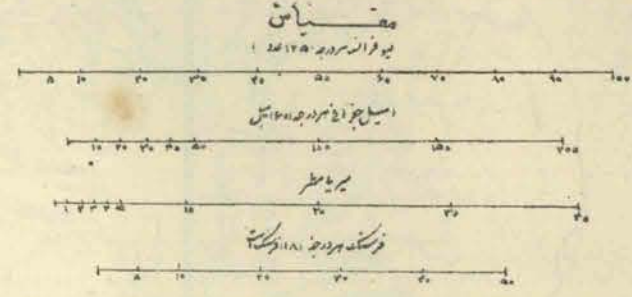 مقیاس
لیو فرانسه هر درجه ۲۵ عدد
۵ ۱۰ ۲۰ ۳۰ ۴۰ ۵۰ ۶۰ ۷۰ ۸۰ ۹۰ ۱۰۰
میل جغرافی هر درجه (۶۰) میل
۱۰ ۲۰ ۳۰ ۴۰ ۵۰ ۱۰۰ ۱۵۰ ۲۰۰
میریامطر
۱ ۲ ۳ ۴ ۵ ۱۵ ۲۰ ۳۵
فرسنگ هر درجه (۱۸) فرسنگ است
۵ ۱۰ ۲۰ ۳۰ ۴۰ ۵۰